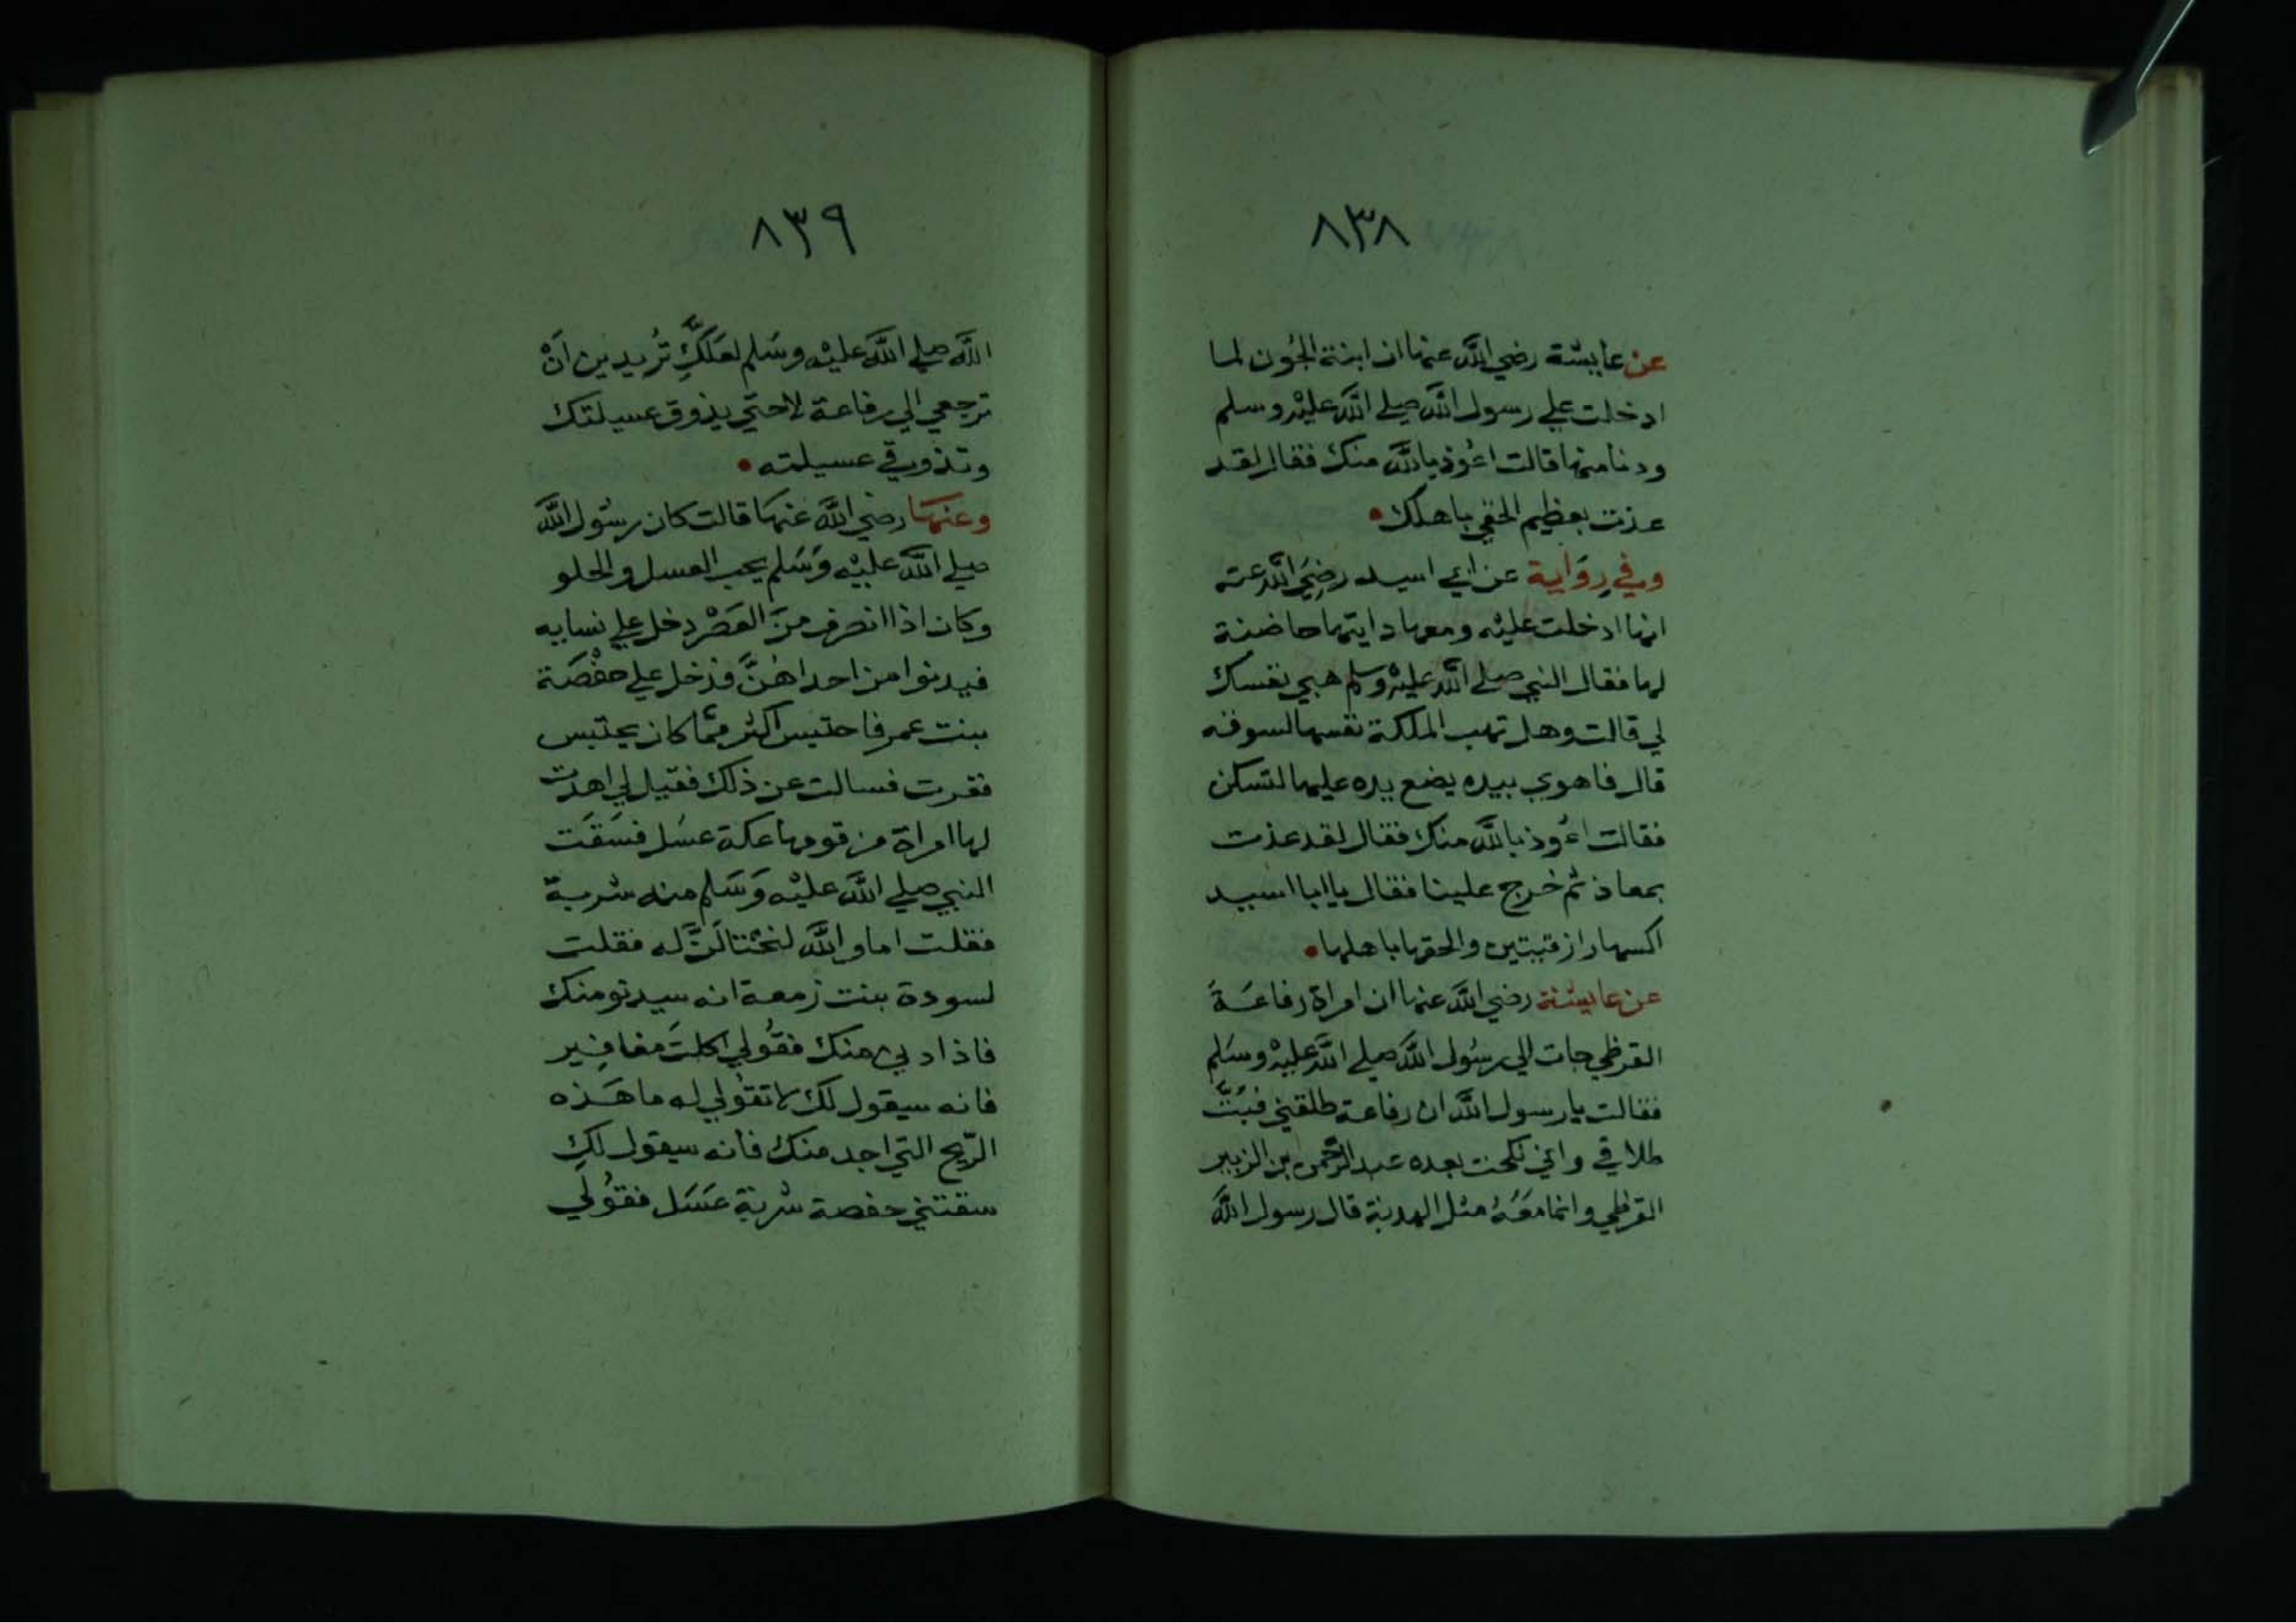 ٨٣٨
عن عايشة رضي الله عنها ان ابنة الجُون لما
ادخلت علي رسول الله صلي الله عليْه وسلم
ودنا منها قالت اعُوذ بالله منك فقال لقد
عذت بعظيم الحقي باهلك
وفي رِوَاية عن ابي اسيد رضيَ الله عنه
انها ادخلت عليْه ومعها دايتها حاضنة
لها فقال النبي صلي الله عليْه وسلم هبي نفسك
لي قالت وهل تهب الملكة نفسها لسوقه
قال فاهوي بيده يضع يده عليها لتسكن
فقالت اعُوذ بالله منك فقال لقد عذت
بمعاذ ثم خرج علينا فقال يا ابا اسيد
اكسها رازقيتين والحقها باهلها
عن عايشة رضي الله عنها ان امراة رفاعَة
القرظي جات الي رسُول الله صلي الله عليْه وسَلم
فقالت يا رسول الله ان رفاعة طلقني فبَتَّ
طلاقي واني نكحت بعده عبد الرَّحمن بن الزبير
القرظي وانما معَهُ مثل الهدبة قال رسول الله
٨٣٩
اللَّه صلي اللَّه عليْه وسَلم لعَلكِّ تُريدين اَنْ
ترجعي الي رفاعة لا حتي يذوق عسيلتك
وتذوقي عسيلته
وعنهَا رضي اللَّه عنهَا قالت كان رسُول اللَّه
صلي اللَّه عليْه وَسَلم يحب العسل والحلو
وكان اذا انصرف منَ العَصْر دخل علي نسايه
فيدنوا من احداهُنَّ فدخل علي حفْصَة
بنت عمر فاحتبس اكثر ممَّا كان يحتبس
فغرت فسالت عن ذلك فقيل لي اهدت
لها امراة من قومها عكة عسَل فسَقَت
النبي صلي اللَّه عليْه وَسَلم منه شربة
فقلت اما واللَّه لنحْتالَنَّ له فقلت
لسودة بنت زمعة انه سيدنو منك
فاذا دني منك فقُولي اكلتَ مغافِير
فانه سيقول لك لا تقُولي له ما هَذه
الرّيح التي اجد منك فانه سيقول لكِ
سقتني حفصة شربة عسَل فقوُلي